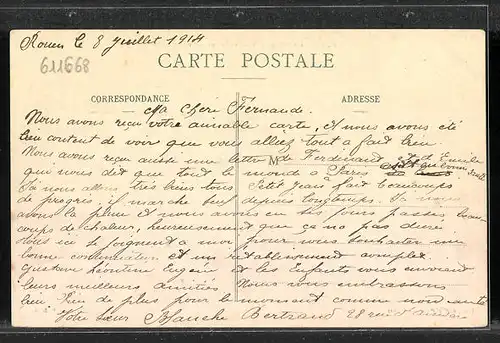 Rouen le 8 juillet 1914
611668
CARTE POSTALE
CORRESPONDANCE
ADRESSE
Ma Chère Fernande.
Nous avons reçu votre aimable carte, et nous avons été
bien content de voir que vous alliez tout a fait bien.
Nous avons reçu aussi une lettre de Ferdinand et Emile
M
qui nous dit que tout le monde a Paris
Ici nous allons très bien tous Petit Jean fait beaucoups
de progrès, il marche seul depuis longtemps. Ici nous
avons la pluie et nous avons eu ses jours passés beau-
coups de chaleur, heureusement que ça no pas duré
tous ici se joignent a moi pour vous souhaiter une
bonne continuation et un rétablissement complet
Gustave Léontine Eugène et les Enfants vous envoient
leurs meilleurs amitiés Nous vous embrassons
bien. Rien de plus pour le moment comme nouveauté
Votre sœur Blanche Bertrand 28 rue